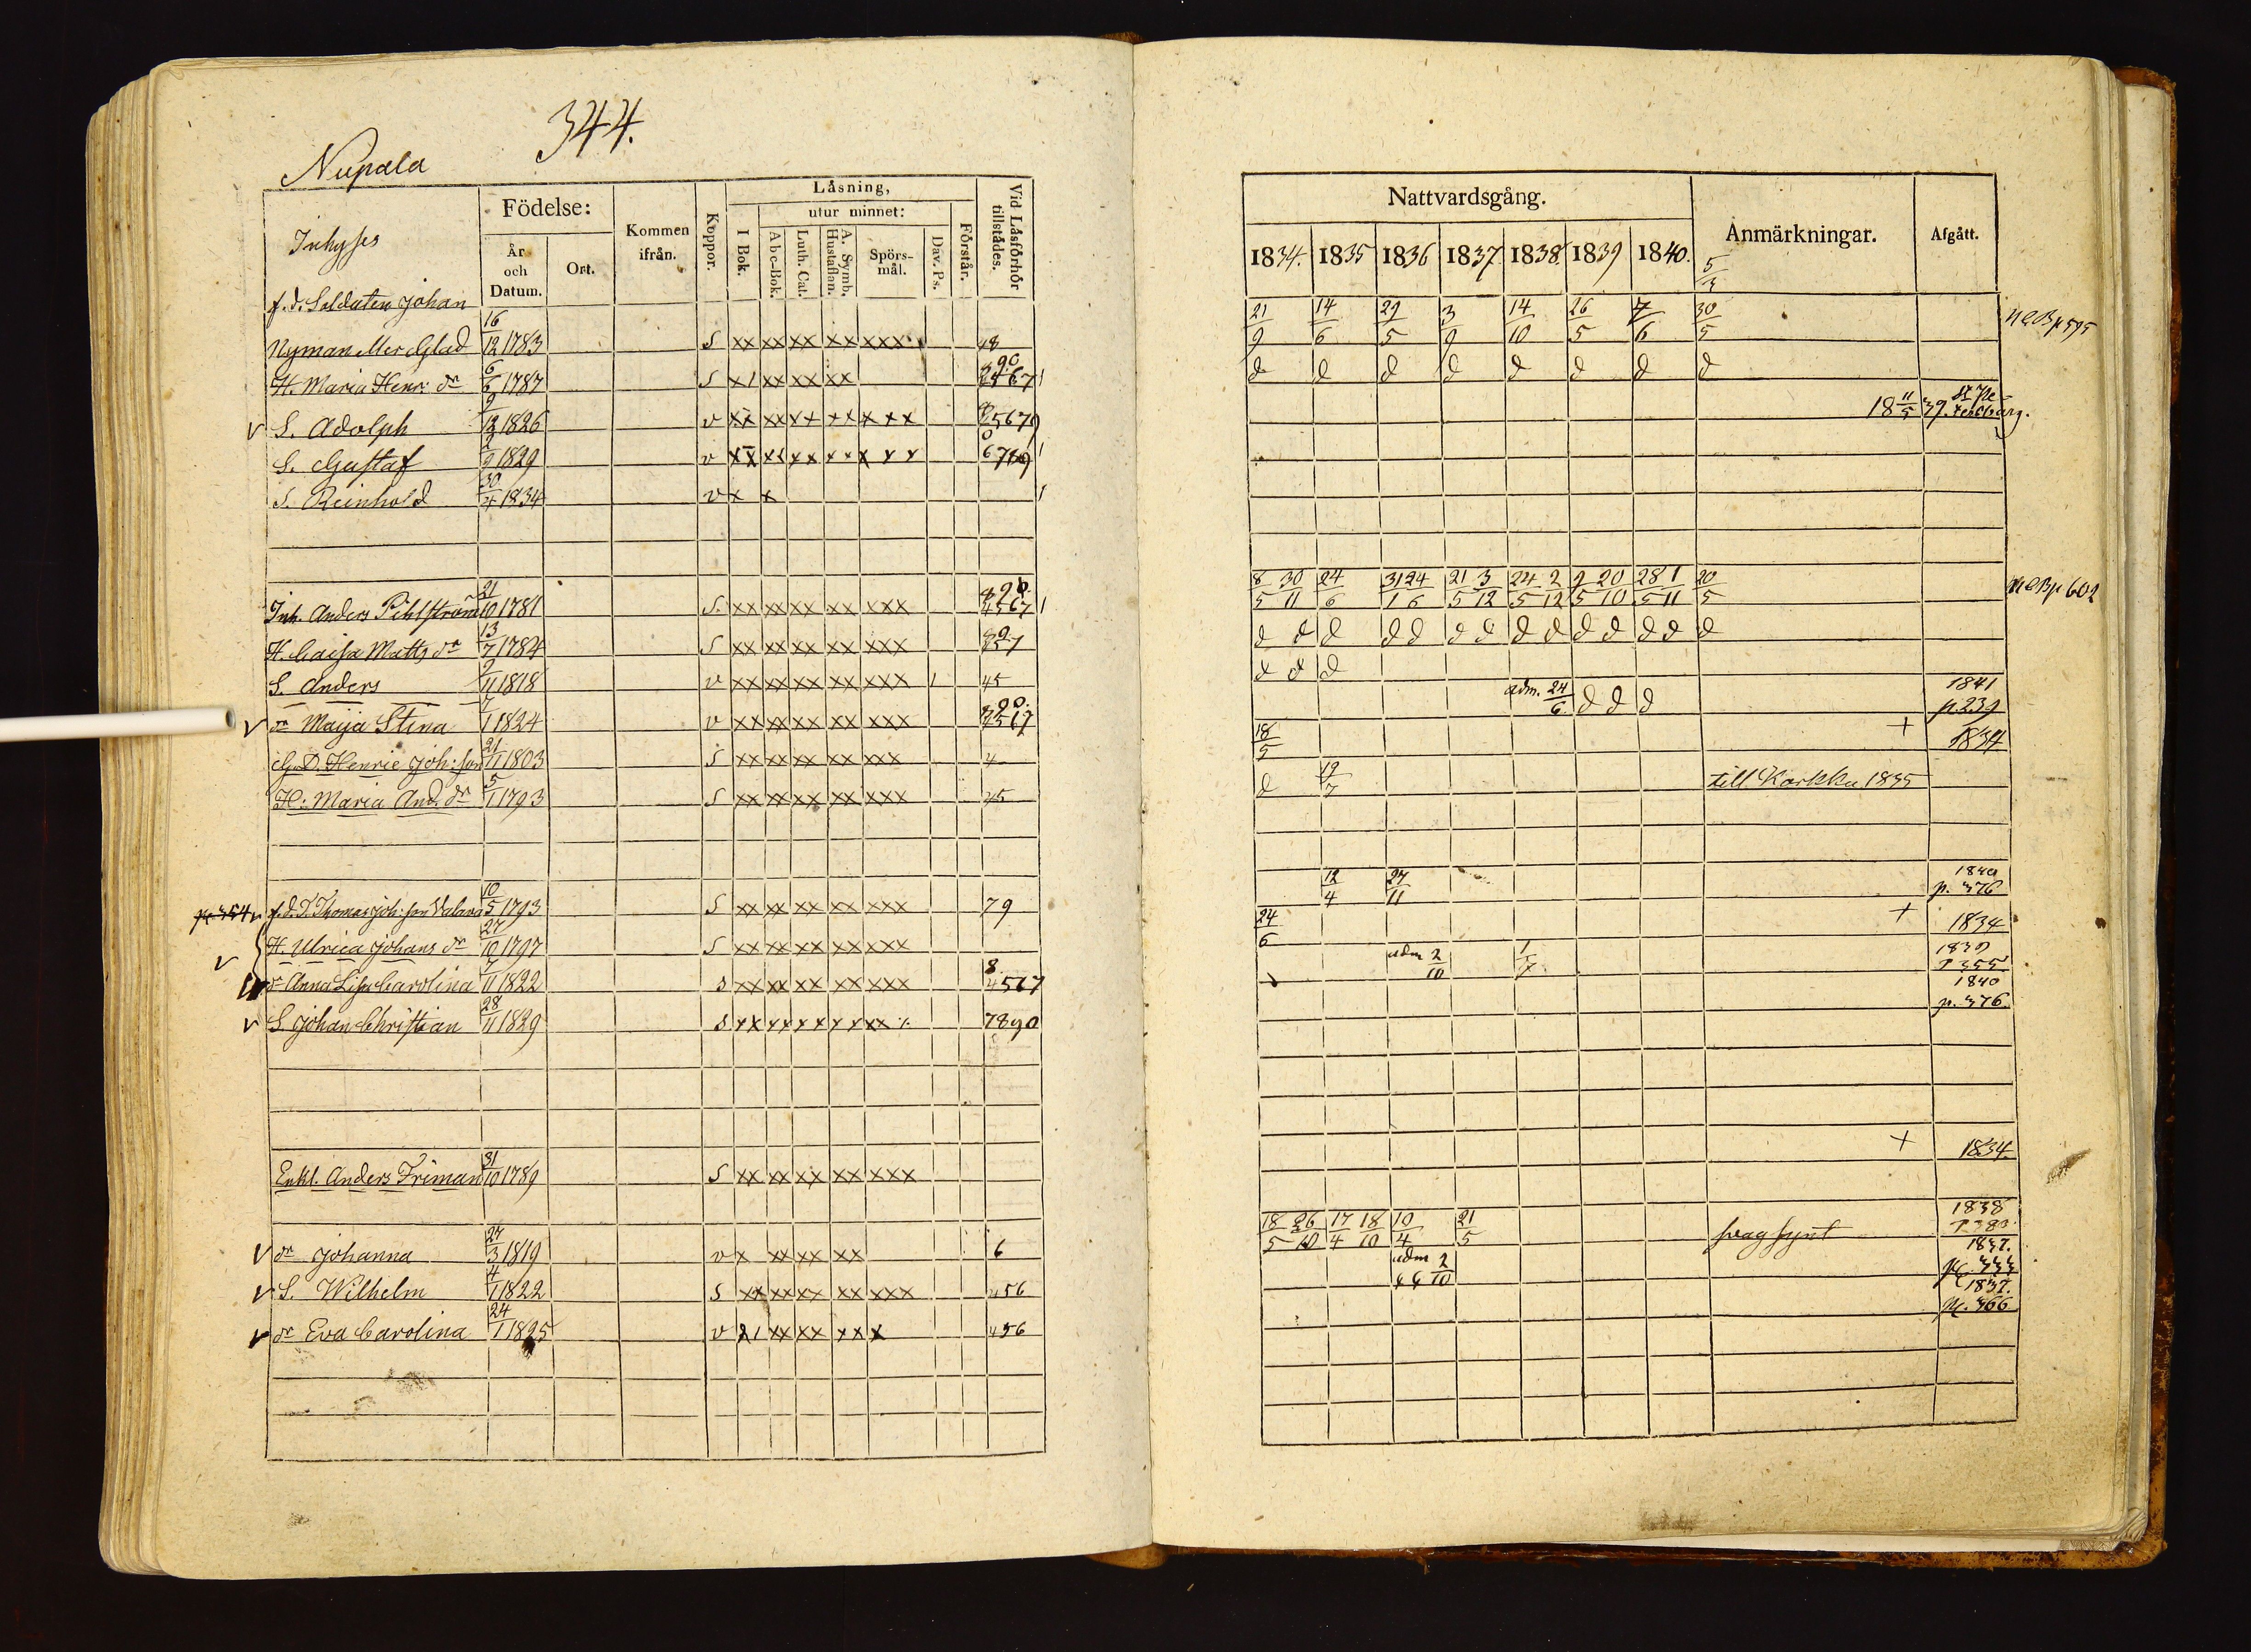 344.
Nupala
Inhyses
Födelse:
År och Datum.
Ort.
Kommen ifrån.
Koppor.
Läsning,
I Bok.
utur minnet:
Abc-Bok.
Luth. Cat.
A. Symb. Hustaflan.
Spörsmål.
Dav. Ps.
Förstår.
Vid Läsförhör tillstådes.
f.d. Soldaten Johan
Nyman eller Glad 16/12 1783 S xx xx xx xx xxx 48
H. Maria Henr. dr 6/6 1787 S x1 xx xx xx
v S. Adolph 1826 v xx xx xx xx xxx 5679
S. Gustaf 1829 v xx xx xx xxx xx 6789
S. Reinhold 30/4 1834 v x x 1
Inh. Anders Pihlström 21/10 1781 S. xx xx xx xx xxx 890. 4567 1
H. Caisa Matts dr 13/7 1784 S xx xx xx xx xxx
S. Anders 9/11 1818 v xx xx xx xx xxx 1 45
v dr Maija Stina 7/1 1824 v xx xx xx xx xxx
Henric Joh: son 21/11 1803 S xx xx xx xx xxx 4
H: Maria And. dr 5/1 1793 S xx xx xx xx xxx 45
p. 354 v f.d. S. Thomas Joh: son 10/5 1793 S xx xx xx xx xxx 79
v H. Ulrica Johans dr 27/10 1797 S xx xx xx xx xxx
dr Anna Lisa Carolina 7/11 1822 s xx xx xx xx xxx 8. 4567
v S. Johan Christian 28/11 1829 s xx xx xx xx xx 7890
Enkl. Anders Friman 31/10 1789 S xx xx xx xx xxx
v dr Johanna 27/3 1819 v x xx xx xx 6
v S. Wilhelm 4/1 1822 S xx xx xx xx xxx 456
v dr Eva Carolina 24/1 1825 v x1 xx xx xx x 456
Nattvardsgång.
Anmärkningar.
Afgått.
1834. 1835 1836 1837 1838 1839 1840.
21/9 14/6 29/5 3/9 14/10 26/5 7/6 30/5 N C B p 595
d d d d d d d d
18 11/5 39.
8/5 30/11 24/6 31/1 24/6 21/5 3/12 24/5 2/12 9/5 20/10 28/5 1/11 20/5 N C B p 602
d d d d d d d d d d d d d d
d d d
adm. 24/6 d d d 1841 p. 239
18/5 + 1834
d 19/7 till Karkku 1835
12/4 27/11 1840 p. 376
24/6 + 1834
adm 2/10 1/7 1839 p 355
1840 p. 376
+ 1834.
18/5 26/10 17/4 18/10 10/4 21/5 svagsynt 1838
adm 2/10 1837. p. 333
1837. p. 366